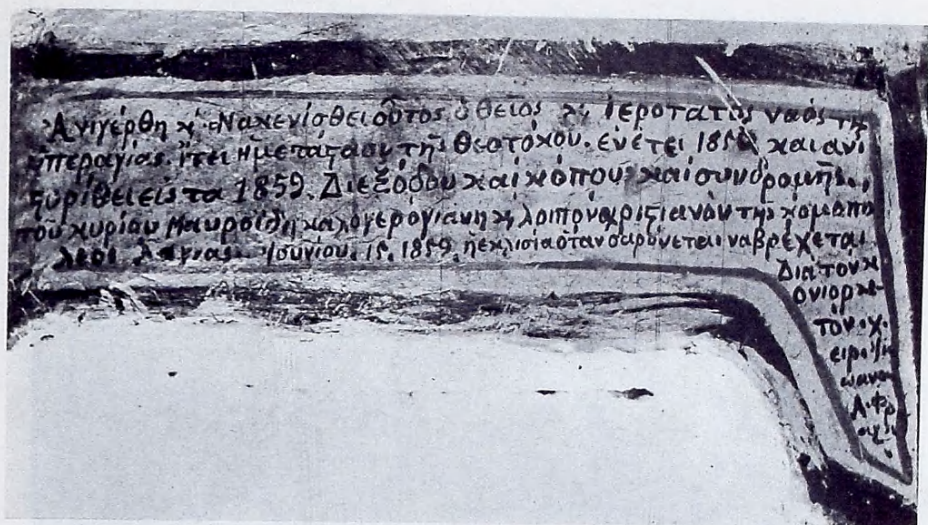 Ανιγέρθη κ̀ ανακενίσθει οὗτος ὁ θεῖος κ̀ ἱεροτατὸς ναὸς τῆς
ὑπεραγίας. Ἤτει ἡ μετάστασις τῆς Θεοτόκου. ἐν ἔτει 185 καὶ ανι
στυρίθει εἰς τα 1859. Διεξόδου καὶ κόπου καὶ συνδρομῆς
τοῦ κυρίου Μαυροΐδη καλογερόγιανη κ̀ λοιπὸν χριστιανὸν τῆς κόμεοπο
λεος Ἰουνίου. 15. 1859. ἡ εκλισία ὅταν σαρόνεται να βρέχεται.
Διὰ τὸν κ
ονιορκ
τόν. χ.
ειρ
ωανου